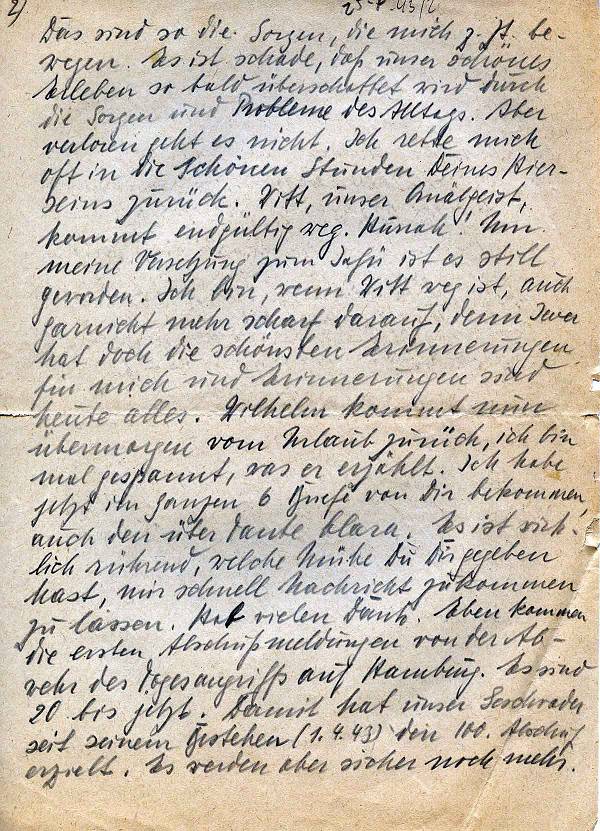 2)
Das sind so die Sorgen, die mich z. Zt. be-
wegen. Es ist schade, daß unser schönes
Erleben so bald überschattet wird durch
die Sorgen und Probleme des Alltags. Aber
verloren geht es nicht. Ich rette mich
oft in die schönen Stunden Deines Hier-
seins zurück. Witt, unser Quälgeist,
kommt endgültig weg. Hurrah! Um
meine Versetzung zum Jafü ist es still
geworden. Ich bin, wenn Witt weg ist, auch
garnicht mehr scharf darauf, denn Jever
hat doch die schönsten Erinnerungen
für mich und Erinnerungen sind
heute alles. Wilhelm kommt nun
übermorgen vom Urlaub zurück, ich bin
mal gespannt, was er erzählt. Ich habe
jetzt im ganzen 6 Briefe von Dir bekommen,
auch den über Tante Clara. Es ist wirk-
lich rührend, welche Mühe Du Dir gegeben
hast, mir schnell Nachricht zukommen
zu lassen. Hab vielen Dank. Eben kommen
die ersten Abschußmeldungen von der Ab-
wehr des Tagesangriffs auf Hamburg. Es sind
20 bis jetzt. Damit hat unser Geschwader
seit seinem Bestehen (1.4.43) den 100. Abschuß
erzielt. Es werden aber sicher noch mehr.